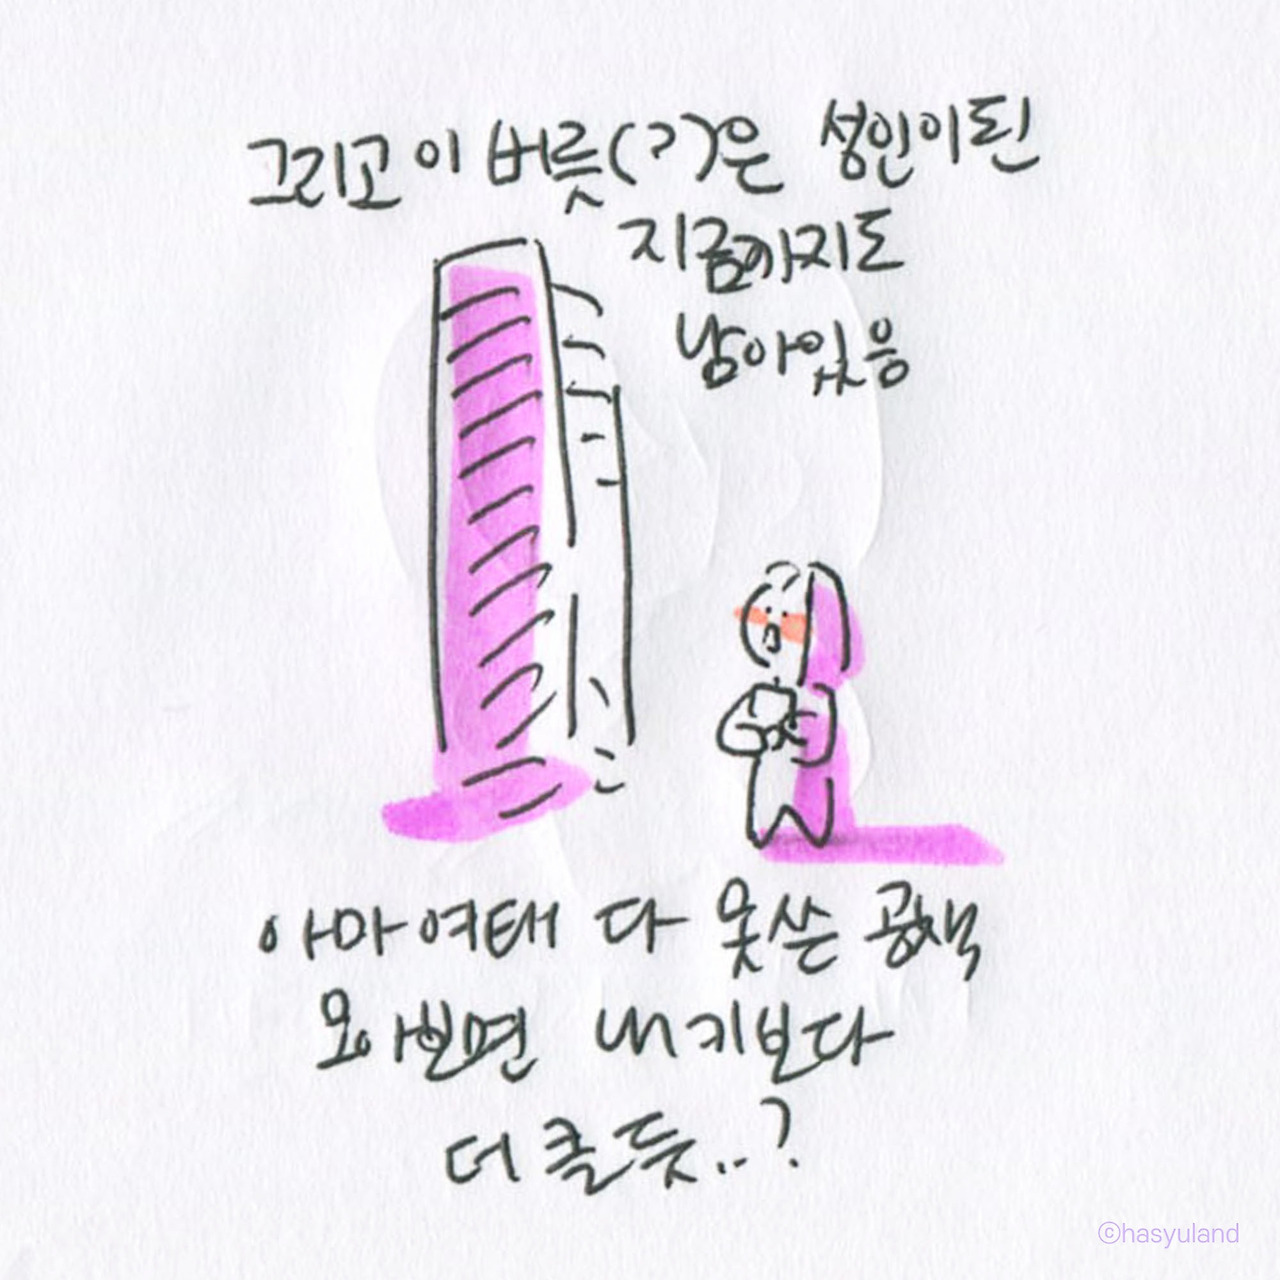 그리고 이 버릇(?)은 성인이된
지금까지도
남아있음
아마 여태 다 못쓴 공책
모아보면 내키보다
더 클듯..?
©hasyuland